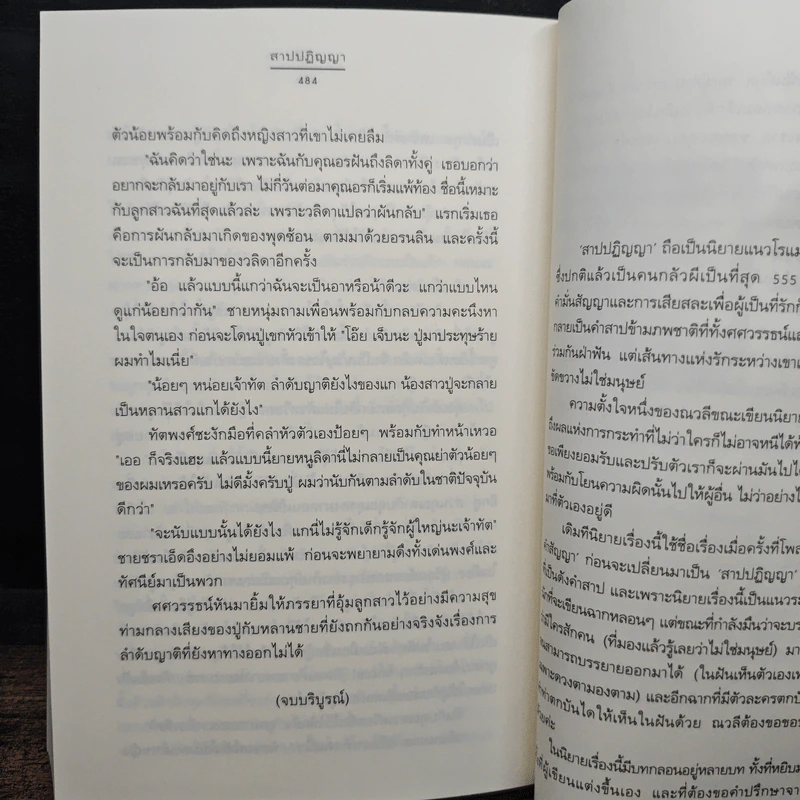 สาปปฏิญญา
484
ตัวน้อยพร้อมกับคิดถึงหญิงสาวที่เขาไม่เคยลืม
"ฉันคิดว่าใช่นะ เพราะฉันกับคุณอรฝันถึงลิดาทั้งคู่ เธอบอกว่า
อยากจะกลับมาอยู่กับเรา ไม่กี่วันต่อมาคุณอรก็เริ่มแพ้ท้อง ชื่อนี้เหมาะ
กับลูกสาวฉันที่สุดแล้วล่ะ เพราะวลิดาแปลว่าผันกลับ" แรกเริ่มเธอ
คือการผันกลับมาเกิดของพุดซ้อน ตามมาด้วยอรนลิน และครั้งนี้
จะเป็นการกลับมาของวลิดาอีกครั้ง
"อ้อ แล้วแบบนี้แกว่าฉันจะเป็นอาหรือน้าดีวะ แกว่าแบบไหน
ดูแก่น้อยกว่ากัน" ชายหนุ่มถามเพื่อนพร้อมกับกลบความคะนึงหา
ในใจตนเอง ก่อนจะโดนปู่เขกหัวเข้าให้ "โอ๊ย เจ็บนะ ปู่มาประทุษร้าย
ผมทำไมเนี่ย"
"น้อยๆ หน่อยเจ้าทัต ลำดับญาติยังไงของแก น้องสาวปู่จะกลาย
เป็นหลานสาวแกได้ยังไง"
ทัตพงศ์ชะงักมือที่คลำหัวตัวเองป้อยๆ พร้อมกับทำหน้าเหวอ
"เออ ก็จริงแฮะ แล้วแบบนี้ยายหนูลิดานี่ไม่กลายเป็นคุณย่าตัวน้อยๆ
ของผมเหรอครับ ไม่ดีมั้งครับปู่ ผมว่านับกันตามลำดับในชาติปัจจุบัน
ดีกว่า"
"จะนับแบบนั้นได้ยังไง แกนี่ไม่รู้จักเด็กรู้จักผู้ใหญ่นะเจ้าทัต"
ชายชราเอ็ดอึงอย่างไม่ยอมแพ้ ก่อนจะพยายามดึงทั้งเด่นพงศ์และ
ทัศนีย์มาเป็นพวก
ศศวรรธน์หันมายิ้มให้ภรรยาที่อุ้มลูกสาวไว้อย่างมีความสุข
ท่ามกลางเสียงของปู่กับหลานชายที่ยังถกกันอย่างจริงจังเรื่องการ
ลำดับญาติที่ยังหาทางออกไม่ได้
(จบบริบูรณ์)
'สาปปฏิญญา' ถือเป็นนิยายแนวโรแม
ซึ่งปกติแล้วเป็นคนกลัวผีเป็นที่สุด 555
คำมั่นสัญญาและการเสียสละเพื่อผู้เป็นที่รักก
กลายเป็นคำสาปข้ามภพชาติที่ทั้งศศวรรธน์แล
ร่วมกันฝ่าฟัน แต่เส้นทางแห่งรักระหว่างเขาแ
ขัดขวางไม่ใช่มนุษย์
ความตั้งใจหนึ่งของณวลีขณะเขียนนิยาย
ถึงผลแห่งการกระทำที่ไม่ว่าใครก็ไม่อาจหนีได้พ้
ขอเพียงยอมรับและปรับตัวเราก็จะผ่านมันไปได้
พร้อมกับโยนความผิดนั้นไปให้ผู้อื่น ไม่ว่าอย่างไร
มาที่ตัวเองอยู่ดี
เดิมทีนิยายเรื่องนี้ใช้ชื่อเรื่องเมื่อครั้งที่โพส
คำสัญญา' ก่อนจะเปลี่ยนมาเป็น 'สาปปฏิญญา'
ที่เป็นดังคำสาป และเพราะนิยายเรื่องนี้เป็นแนวระ
ที่จะเขียนฉากหลอนๆ แต่ขณะที่กำลังมึนว่าจะบร
มีใครสักคน (ที่มองแล้วรู้เลยว่าไม่ใช่มนุษย์) มา
สามารถบรรยายออกมาได้ (ในฝันเห็นตัวเองเ
เพราะดวงตามองตาม) และอีกฉากที่มีตัวละครตกบั
ตกบันไดให้เห็นในฝันด้วย ณวลีต้องขอขอ
ด้วยค่ะ
ในนิยายเรื่องนี้มีบทกลอนอยู่หลายบท ทั้งที่หยิบม
ผู้เขียนแต่งขึ้นเอง และที่ต้องขอคำปรึกษาจา